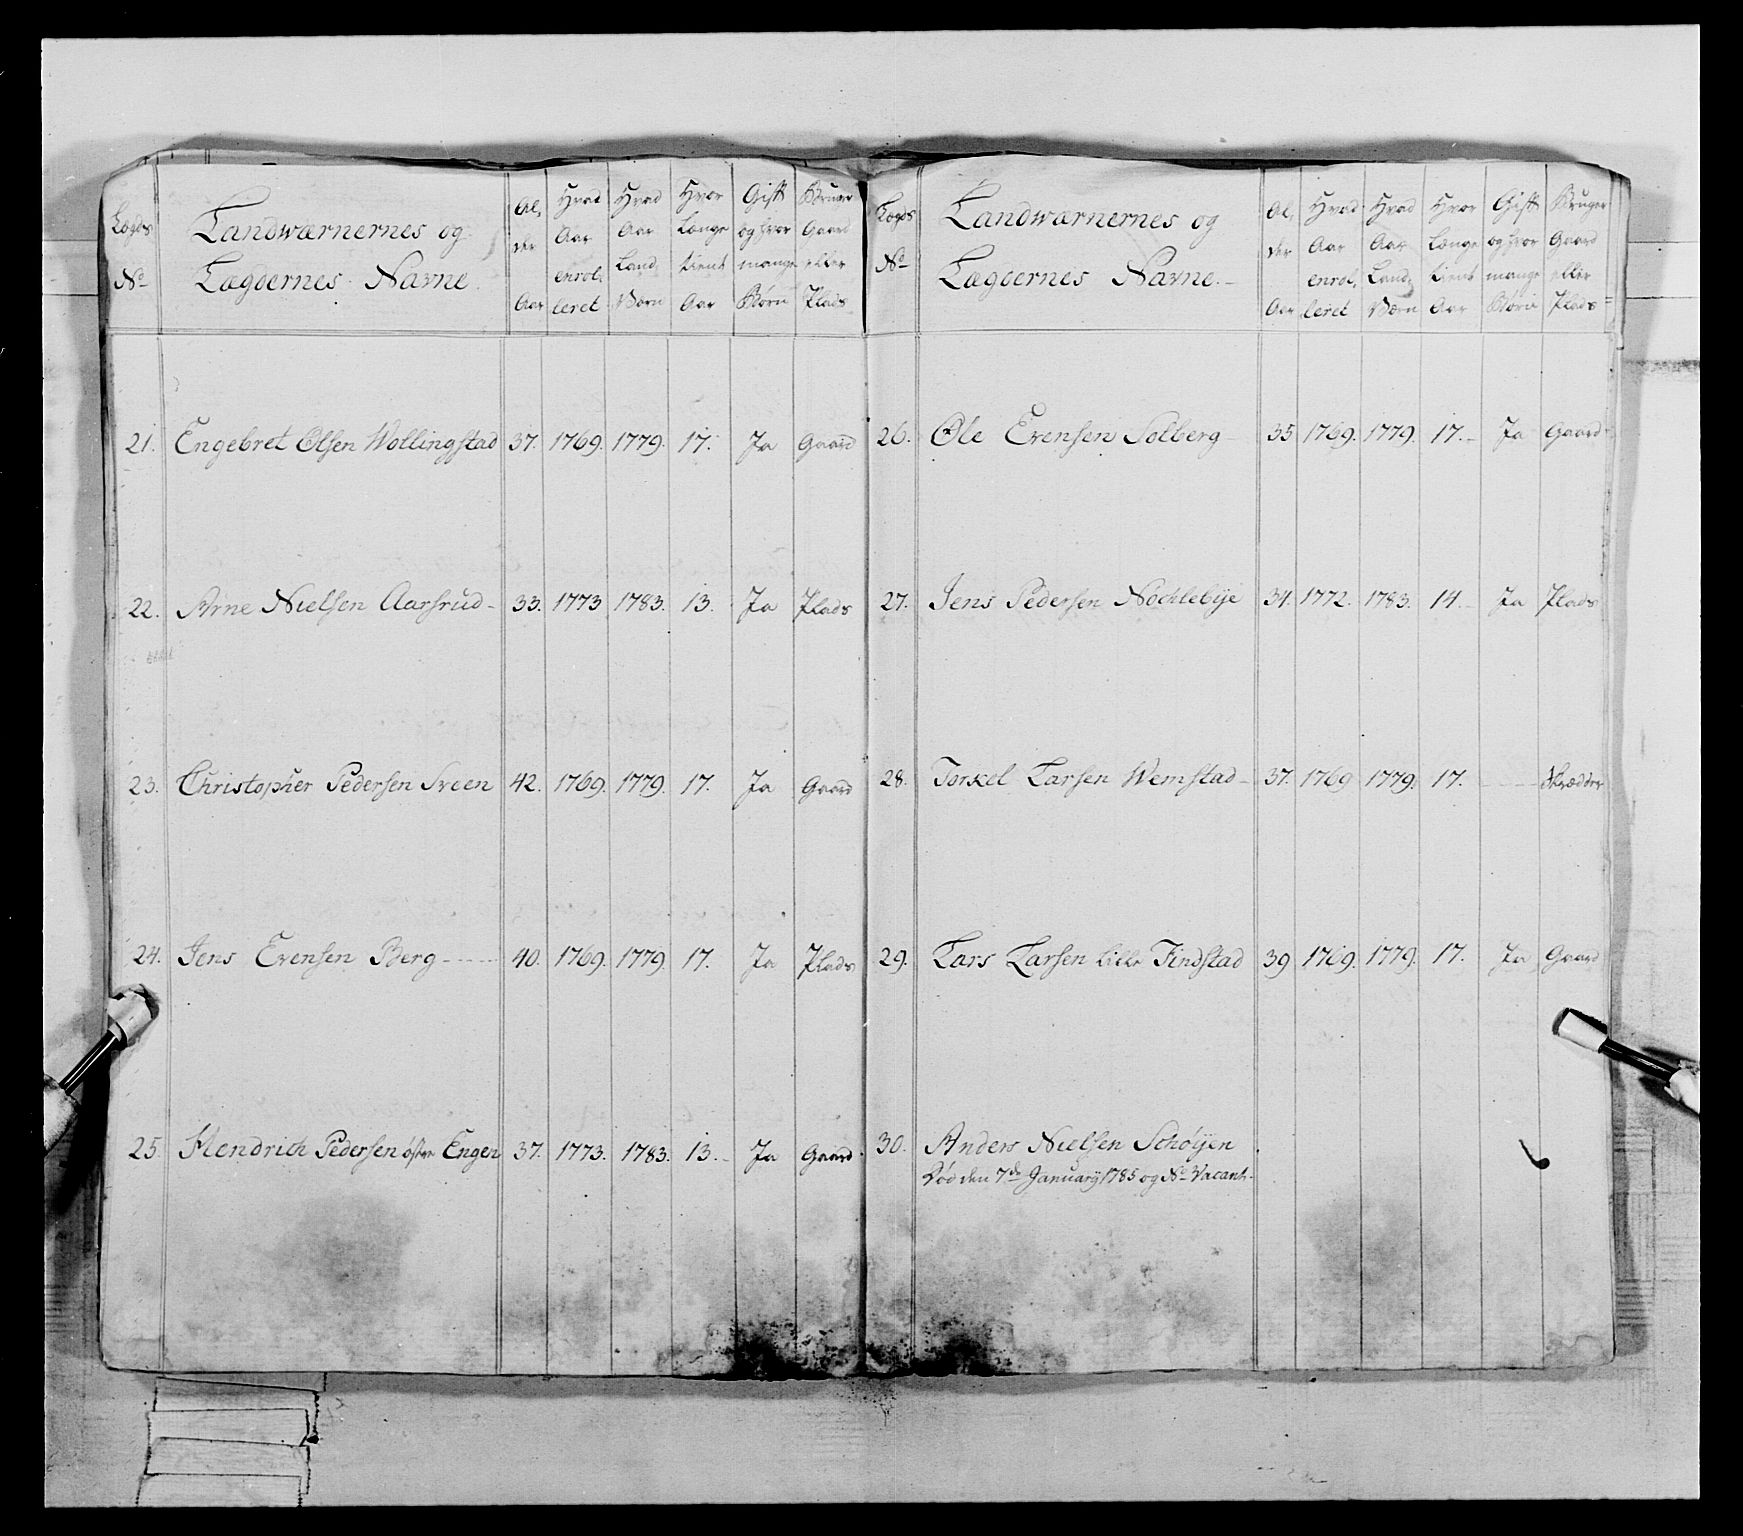 Lægds No
Landwærnernes og
Lægdernes Navne.
Al,
der
Aar
Hvad
Aar
enrol,
leret
Hvad
Aar
Land,
Værn
Hvor
Længe
tient
Aar
Gift
og hvor
mange
Børn
Bruger
Gaard
eller
Plads
21. Engebret Olsen Wollingstad 37. 1769. 1779. 17. Ja Gaard
22. Arne Nielsen Aarsrud - 33. 1773 1783. 13. Ja Plads
23. Christopher Pedersen Sveen 42. 1769. 1779. 17. Ja Gaard
24. Jens Evensen Berg - - - - 40. 1769. 1779. 17. Ja Plads
25. Hendrich Pedersen østre Engen 37. 1773. 1783. 13. - Ja Gaard.
Lægds No
Landwærnernes og
Lægdernes Navne. -
Al,
der
Aar
Hvad
Aar
enrol,
leret
Hvad
Aar
Land,
Værn
Hvor
Længe
tient
Aar
Gift
og hvor
mange
Børn
Bruger
Gaard
eller
Plads
26. Ole Evensen Solberg - 35 1769. 1779. 17. - Ja Gaard
27. Jens Pedersen Nochlebye 34. 1772. 1783. 14. - Ja Plads
28. Torkel Larsen Wemstad - 37. 1769 1779. 17. - - - Skrædder
29. Lars Larsen Lille Findstad 39 1769. 1779. 17. Ja Gaard
30. Anders Nielsen Schøyen
Død den 7de January 1785 og No Vacant.